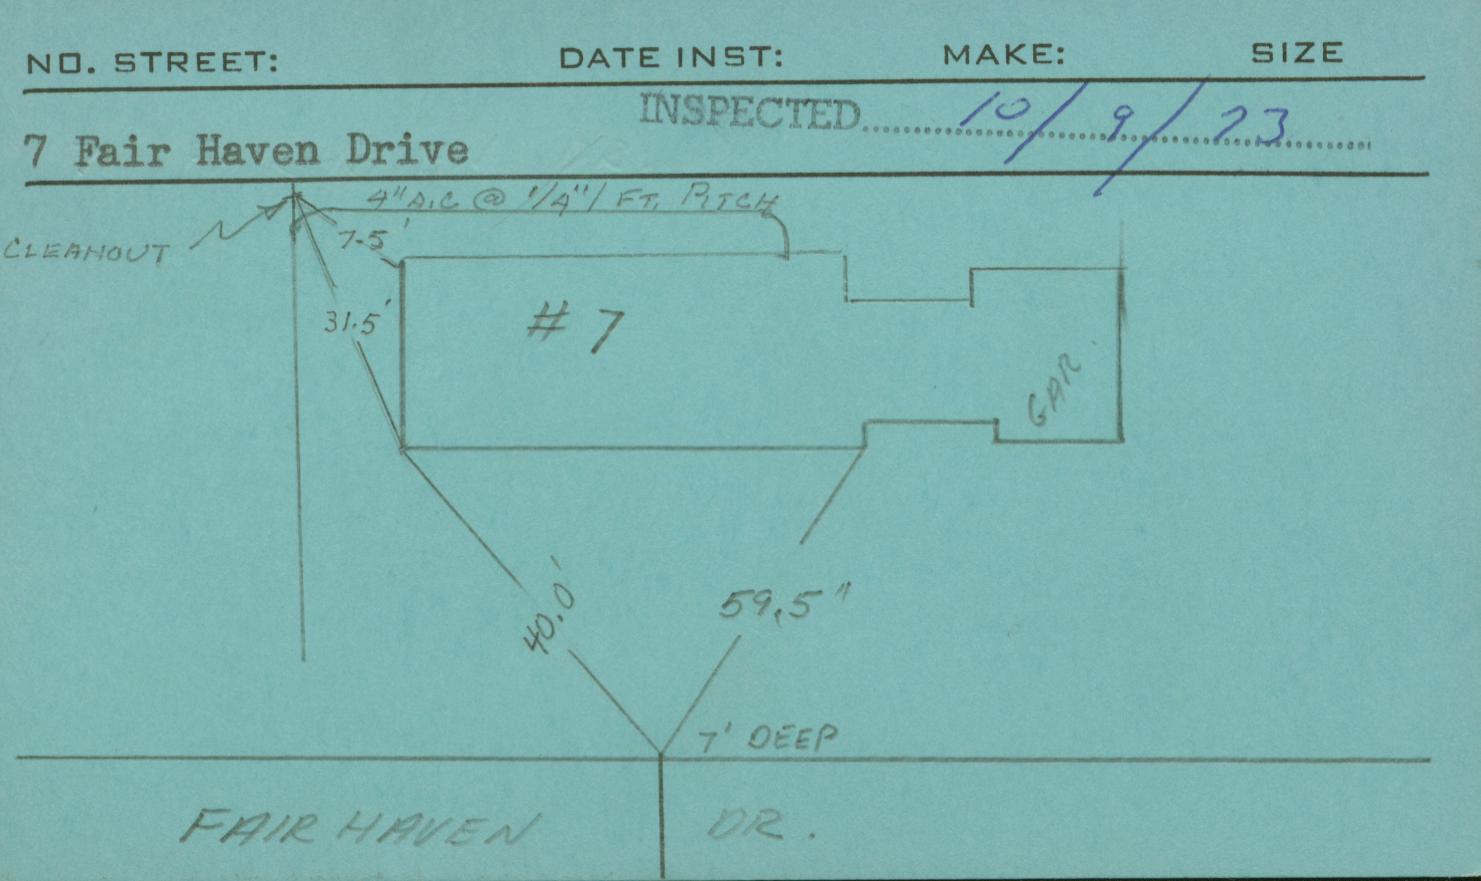 NO. STREET: DATE INST: MAKE: SIZE
INSPECTED 10/9/73
7 Fair Haven Drive
4" A.C @ 1/4"/ FT. PITCH
CLEANOUT
7.5'
31.5'
# 7
GAR.
40.0'
59.5"
7' DEEP
FAIR HAVEN DR.